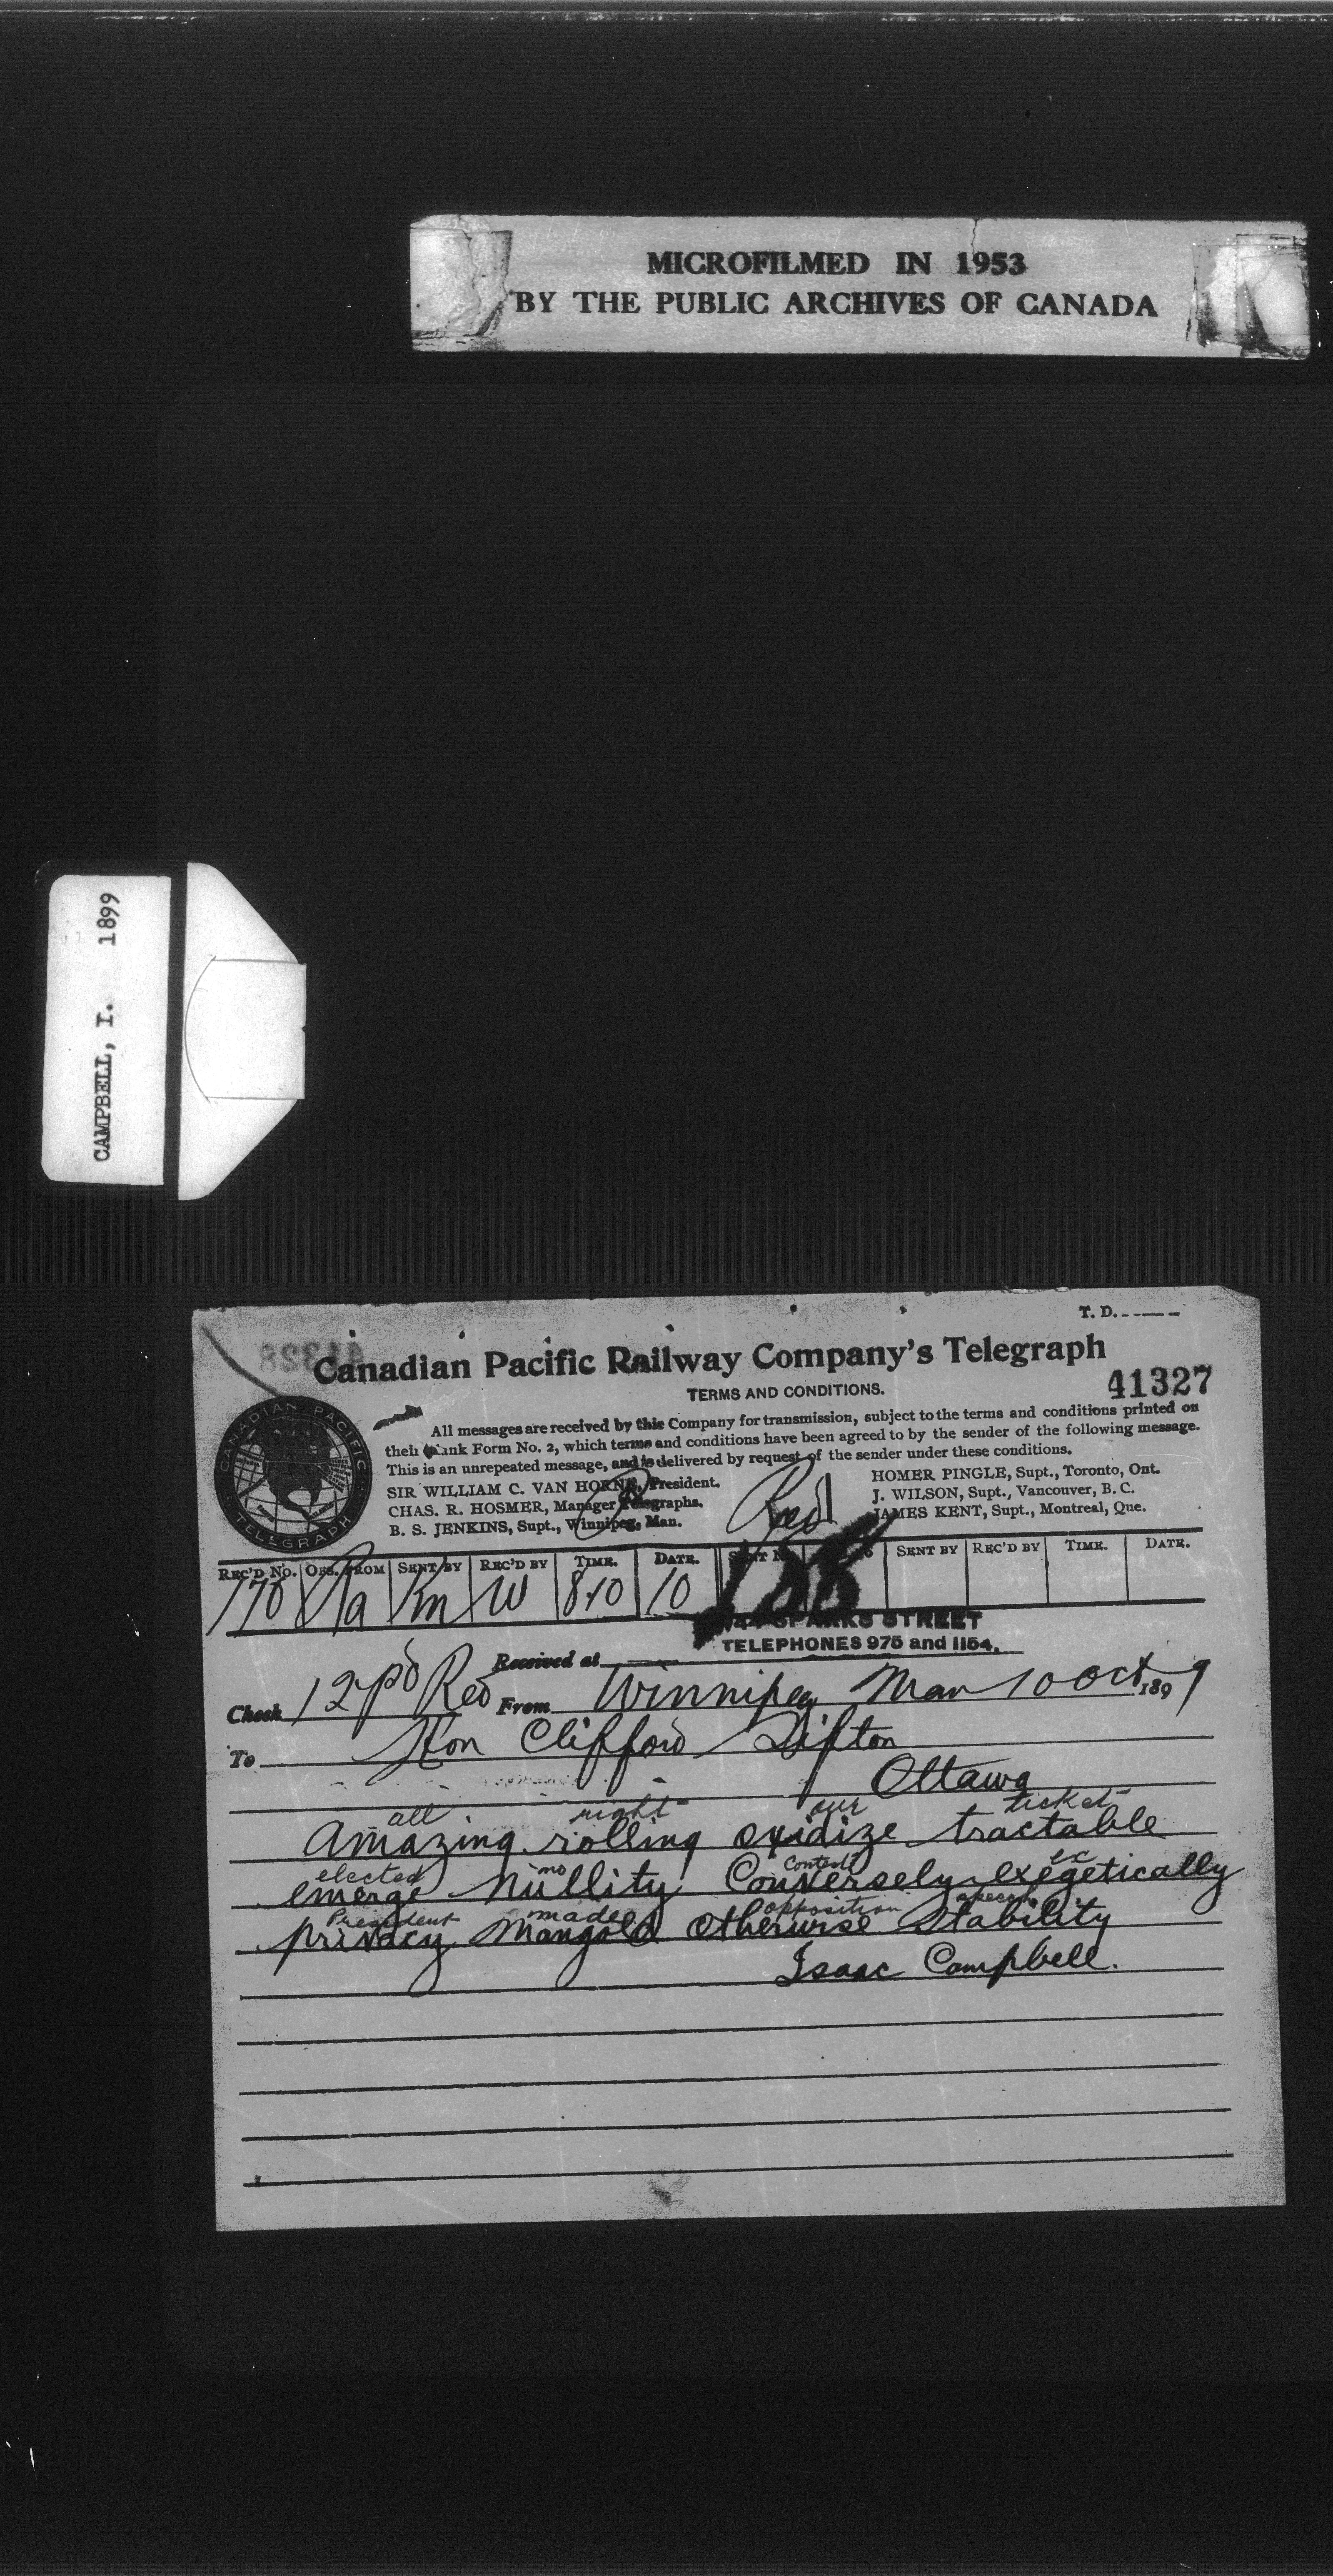 MICROFILMED IN 1953
BY THE PUBLIC ARCHIVES OF CANADA
CAMPBELL, I. 1899
T. D.
Canadian Pacific Railway Company's Telegraph
TERMS AND CONDITIONS.
41327
CANADIAN PACIFIC
TELEGRAPH
All messages are received by this Company for transmission, subject to the terms and conditions printed on
their Blank Form No. 2, which terms and conditions have been agreed to by the sender of the following message.
This is an unrepeated message, and is delivered by request of the sender under these conditions.
SIR WILLIAM C. VAN HORNE, President.
CHAS. R. HOSMER, Manager Telegraphs.
B. S. JENKINS, Supt., Winnipeg, Man.
HOMER PINGLE, Supt., Toronto, Ont.
J. WILSON, Supt., Vancouver, B. C.
JAMES KENT, Supt., Montreal, Que.
REC'D NO. FROM SENT BY REC'D BY TIME. DATE. SENT BY REC'D BY TIME. DATE.
170 W 8.10 10
SPARKS STREET
TELEPHONES 975 and 1154.
Received at
Check 12 pd Red From Winnipeg Man 10 Oct 1899
To Hon Clifford Sifton
Ottawa
all right our ticket
Amazing rolling oxidize tractable
elected no contest ex
emerge nullity Conversely exegetically
President made opposition
privacy Mangold Otherwise Stability
Isaac Campbell.